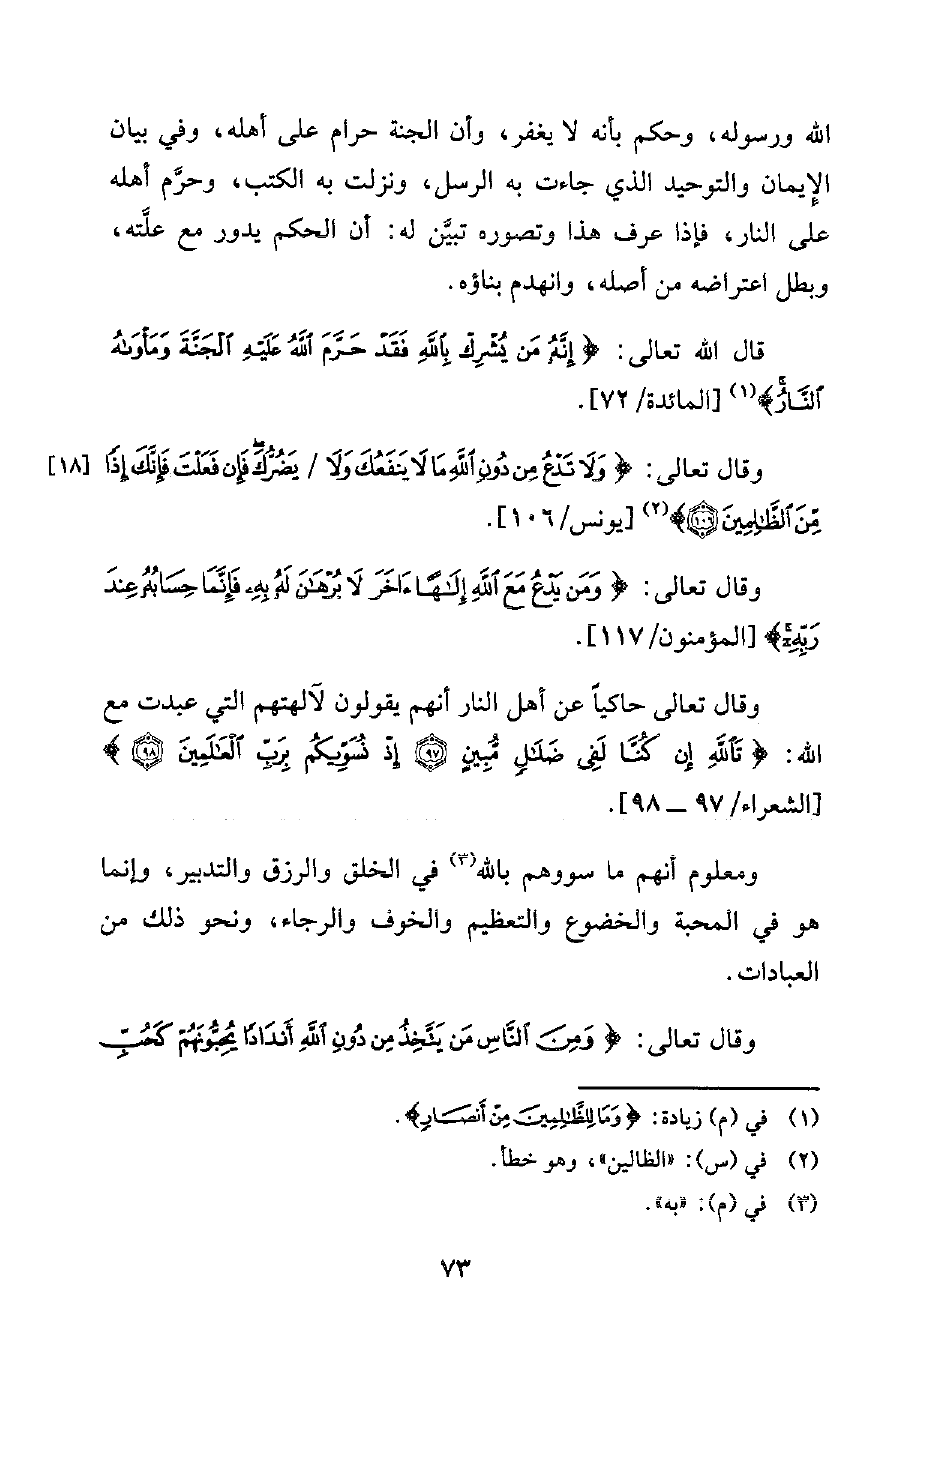 الله ورسوله، وحكم بأنه لا يغفر، وأن الجنة حرام على أهله، وفي بيان
الإيمان والتوحيد الذي جاءت به الرسل، ونزلت به الكتب، وحرَّم أهله
على النار، فإذا عرف هذا وتصوره تبيَّن له: أن الحكم يدور مع علَّته،
وبطل اعتراضه من أصله، وانهدم بناؤه.
قال الله تعالى: ﴿ إِنَّهُۥ مَن يُشْرِكْ بِٱللَّهِ فَقَدْ حَرَّمَ ٱللَّهُ عَلَيْهِ ٱلْجَنَّةَ وَمَأْوَىٰهُ
ٱلنَّارُۖ﴾(١) [المائدة/ ٧٢].
وقال تعالى: ﴿ وَلَا تَدْعُ مِن دُونِ ٱللَّهِ مَا لَا يَنفَعُكَ وَلَا / يَضُرُّكَۖ فَإِن فَعَلْتَ فَإِنَّكَ إِذًا [١٨]
مِّنَ ٱلظَّٰلِمِينَ ١٠٦﴾(٢) [يونس/ ١٠٦].
وقال تعالى: ﴿ وَمَن يَدْعُ مَعَ ٱللَّهِ إِلَٰهًا ءَاخَرَ لَا بُرْهَٰنَ لَهُۥ بِهِۦ فَإِنَّمَا حِسَابُهُۥ عِندَ
رَبِّهِۦٓۚ﴾ [المؤمنون/ ١١٧].
وقال تعالى حاكياً عن أهل النار أنهم يقولون لآلهتهم التي عبدت مع
الله: ﴿ تَٱللَّهِ إِن كُنَّا لَفِى ضَلَٰلٍ مُّبِينٍ ٩٧ إِذْ نُسَوِّيكُم بِرَبِّ ٱلْعَٰلَمِينَ ٩٨ ﴾
[الشعراء/ ٩٧ ــ ٩٨].
ومعلوم أنهم ما سووهم بالله(٣) في الخلق والرزق والتدبير، وإنما
هو في المحبة والخضوع والتعظيم والخوف والرجاء، ونحو ذلك من
العبادات.
وقال تعالى: ﴿ وَمِنَ ٱلنَّاسِ مَن يَتَّخِذُ مِن دُونِ ٱللَّهِ أَندَادًا يُحِبُّونَهُمْ كَحُبِّ
(١) في (م) زيادة: ﴿وَمَا لِلظَّٰلِمِينَ مِنْ أَنصَارٍ﴾.
(٢) في (س): «الظالين»، وهو خطأ.
(٣) في (م): «به».
٧٣